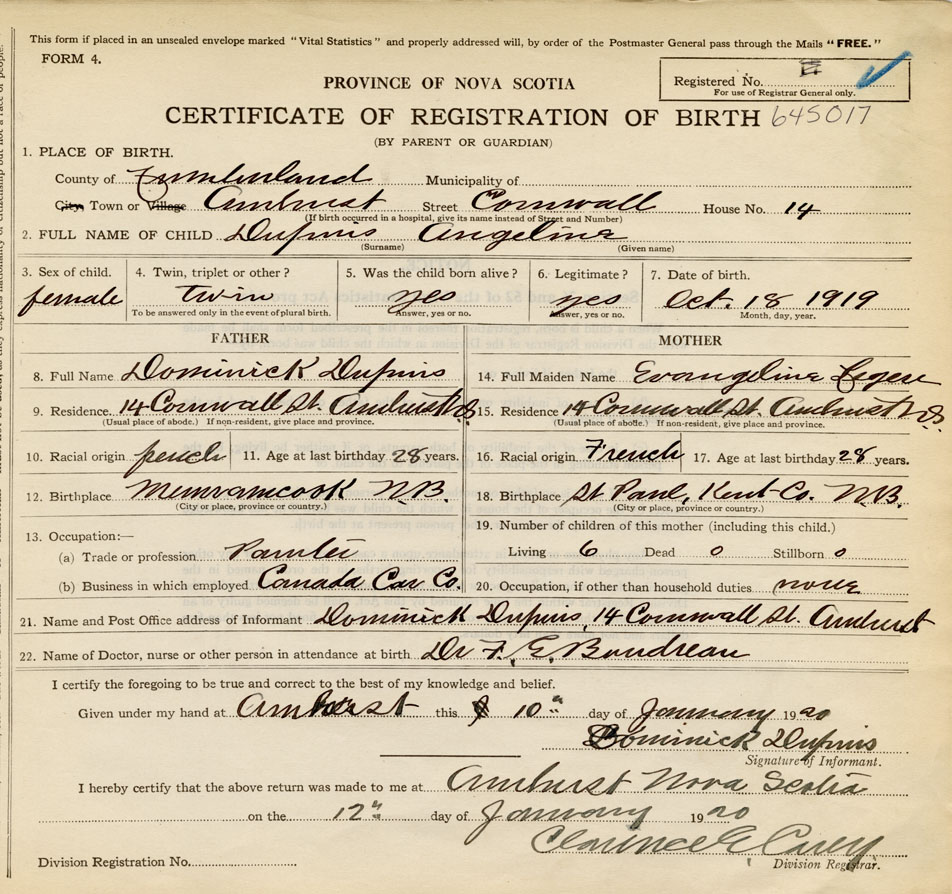 This form if placed in an unsealed envelope marked "Vital Statistics" and properly addressed will, by order of the Postmaster General pass through the Mails "FREE."
FORM 4.
Registered No.
For use of Registrar General only.
PROVINCE OF NOVA SCOTIA
CERTIFICATE OF REGISTRATION OF BIRTH 645017
(BY PARENT OR GUARDIAN)
1. PLACE OF BIRTH.
County of Cumberland Municipality of
City, Town or Village Amhurst Street Cornwall House No. 14
(If birth occurred in a hospital, give its name instead of Street and Number)
2. FULL NAME OF CHILD Dupuis Angeline
(Surname) (Given name)
3. Sex of child. 4. Twin, triplet or other? 5. Was the child born alive? 6. Legitimate? 7. Date of birth.
female twin yes yes Oct. 18 1919
To be answered only in the event of plural birth. Answer, yes or no. Answer, yes or no. Month, day, year.
FATHER MOTHER
8. Full Name Dominick Dupuis 14. Full Maiden Name Evangeline Legere
9. Residence. 14 Cornwall St. Amhurst N.S. 15. Residence 14 Cornwall St. Amhurst N.S.
(Usual place of abode.) If non-resident, give place and province. (Usual place of abode.) If non-resident, give place and province.
10. Racial origin french 11. Age at last birthday 28 years. 16. Racial origin French 17. Age at last birthday 28 years.
12. Birthplace Memramcook N.B. 18. Birthplace St Paul, Kent Co. N.B.
(City or place, province or country.) (City or place, province or country.)
13. Occupation:— 19. Number of children of this mother (including this child.)
(a) Trade or profession Painter Living 6 Dead 0 Stillborn 0
(b) Business in which employed Canada Car Co. 20. Occupation, if other than household duties none
21. Name and Post Office address of Informant Dominick Dupuis, 14 Cornwall St. Amhurst
22. Name of Doctor, nurse or other person in attendance at birth Dr F. E. Boudreau
I certify the foregoing to be true and correct to the best of my knowledge and belief.
Given under my hand at Amherst this 10th day of January 1920
Dominick Dupuis
Signature of Informant.
I hereby certify that the above return was made to me at Amhurst Nova Scotia
on the 12th day of January 1920
Clarence E Casey
Division Registration No. Division Registrar.